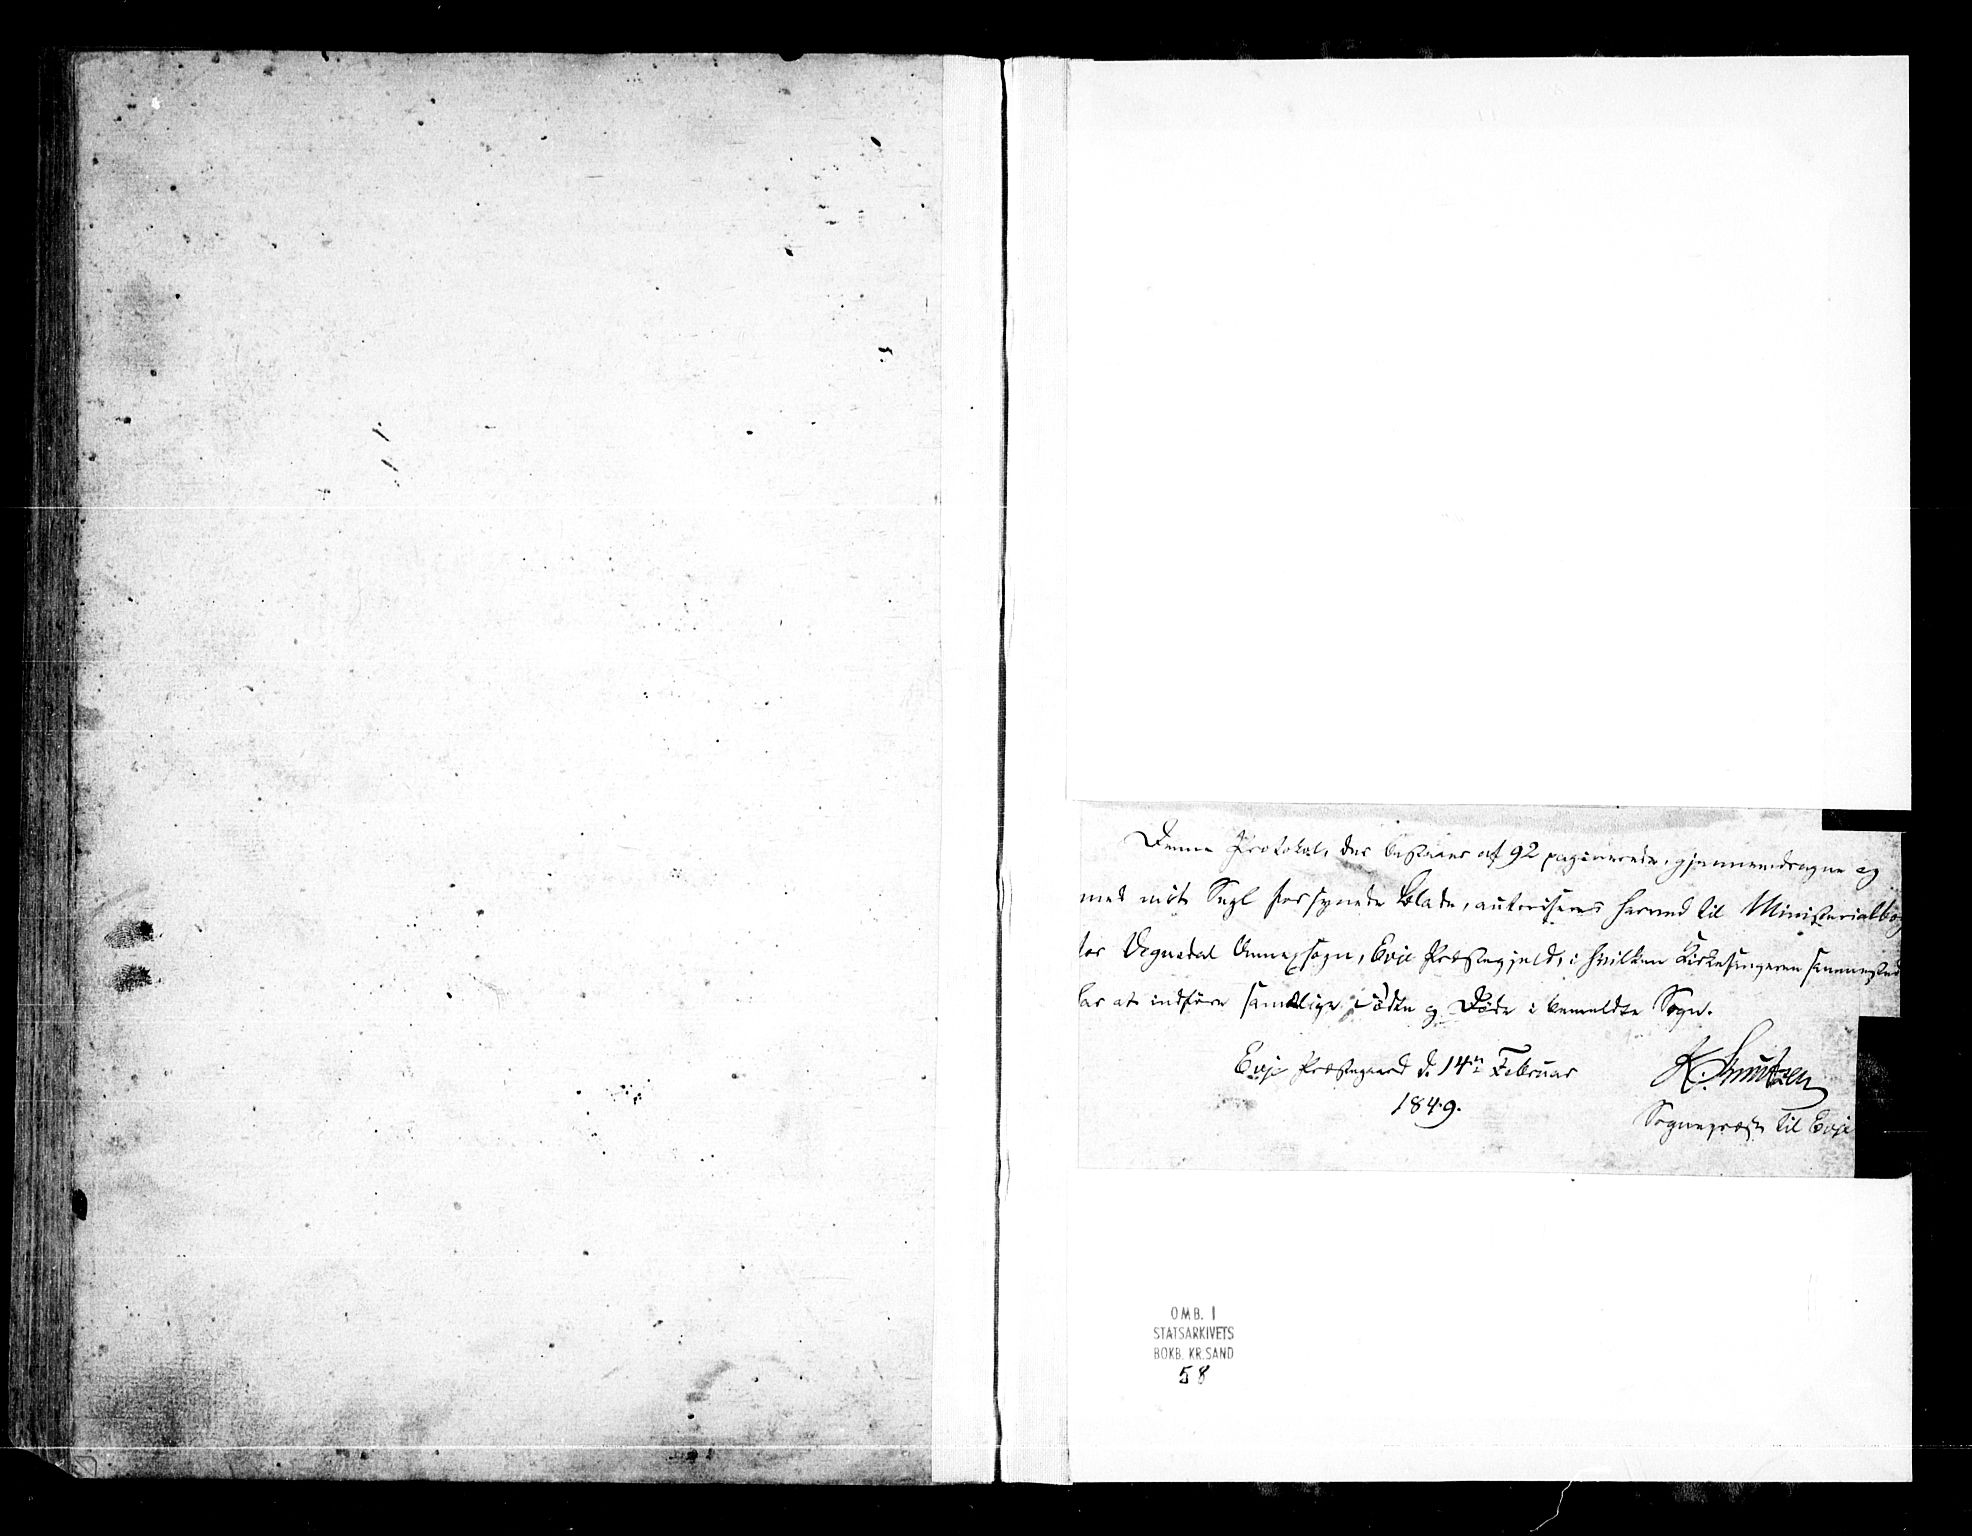 Denne Protokol, der bestaaer af 92 paginerede, gjennemdragne og
med mit Segl forsynede Blade, autoriseres herved til Ministerialbog
for Vegusdal Annexsogn, Evje Præstegjeld, i hvilken Kirkesangeren sammested
har at indføre samtlige Fødte og Døde i bemeldte Sogn.
Evje Præstegaard d. 14de Februar
1849.
K. Knutzen
Sognepræst til Evje
OMB. I
STATSARKIVETS
BOKB. KR.SAND
58